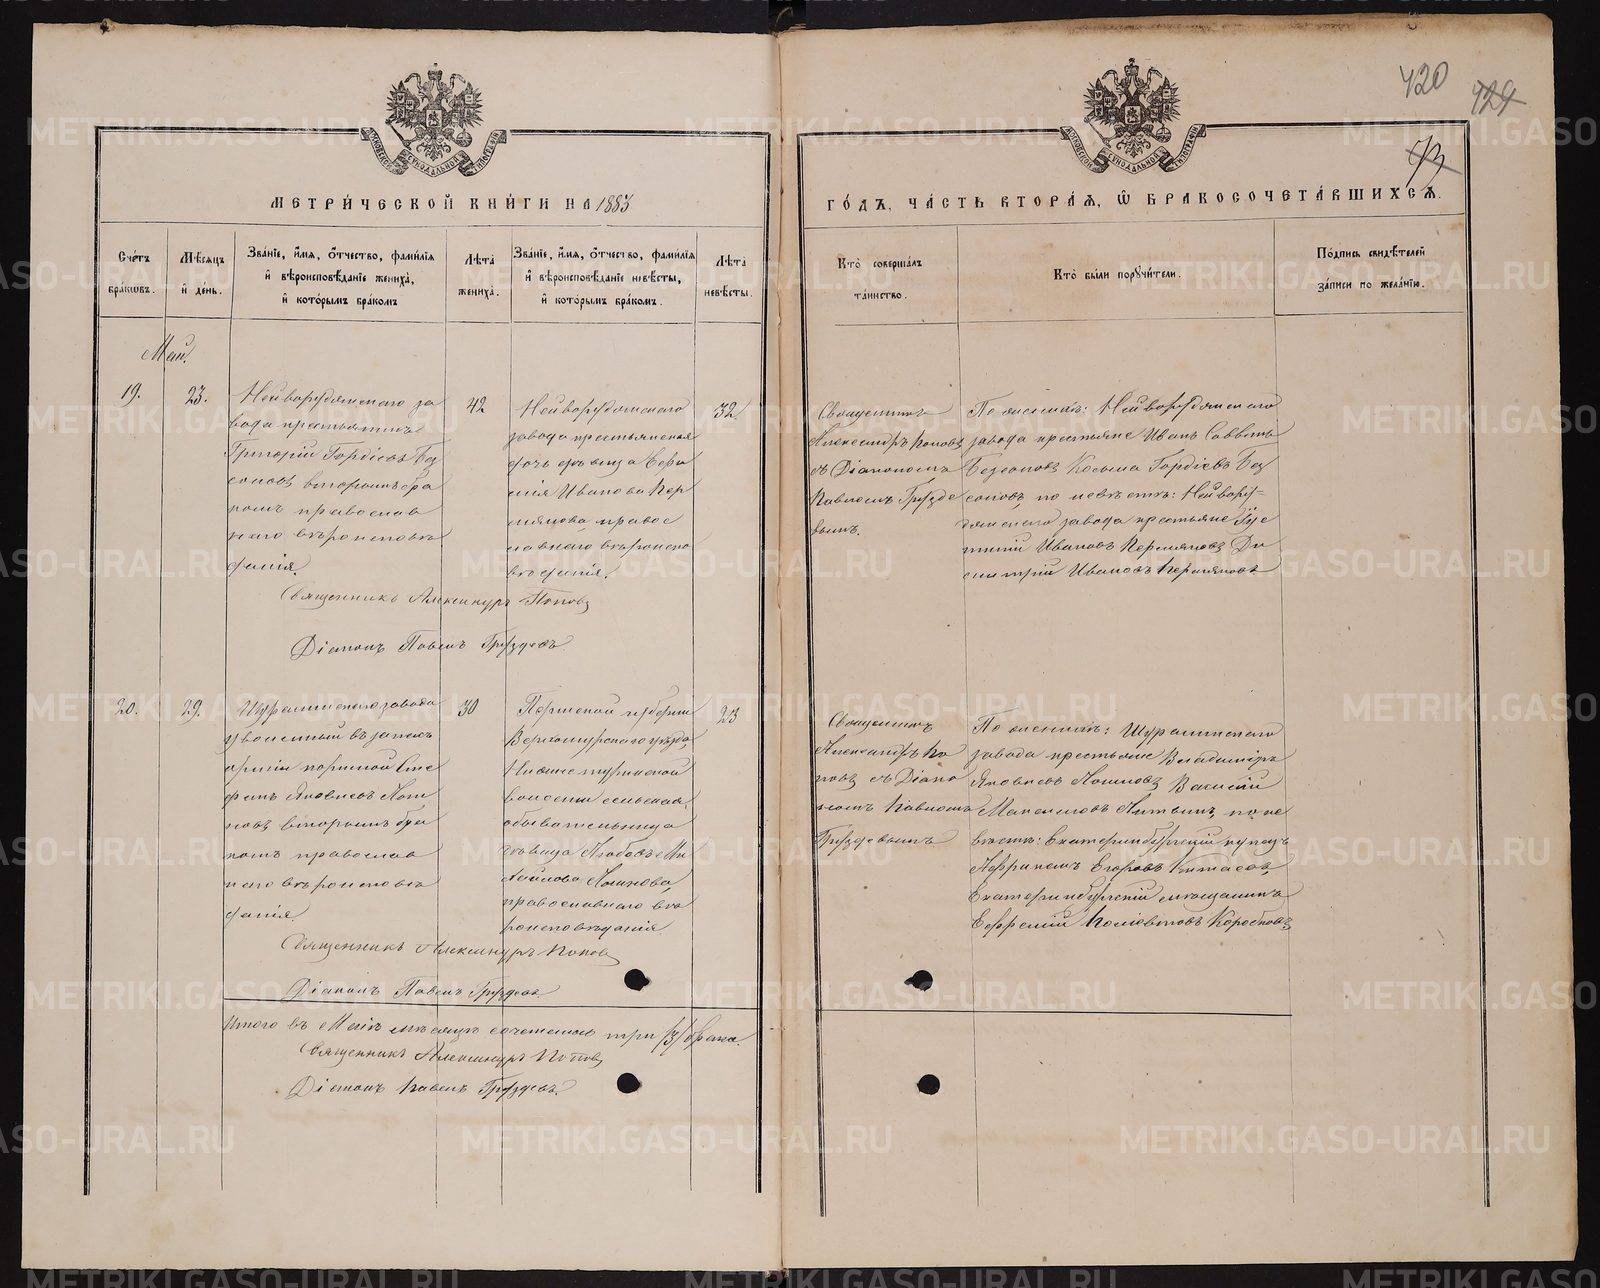 420 424
73
МЕТРИЧЕСКОЙ КНИГИ НА 1883
ГОДЪ, ЧАСТЬ ВТОРАЯ, Ѿ БРАКОСОЧЕТАВШИХСЯ.
Счетъ браковъ.
Мѣсяцъ и день.
Званіе, имя, отчество, фамилія
и вѣроисповѣданіе жениха,
и которымъ бракомъ
Лѣта
жениха.
Званіе, имя, отчество, фамилія
и вѣроисповѣданіе невѣсты,
и которымъ бракомъ.
Лѣта
невѣсты.
Кто совершалъ
таинство.
Кто были поручители.
Подпись свидѣтелей
записи по желанію.
Май.
19.
23.
Нейворудянскаго за
вода крестьянинъ
Григорій Гордіевъ Без
соновъ вторымъ бра
комъ православ
наго вѣроисповѣ
данія.
42
Нейворудянскаго
завода крестьянская
дочь дѣвица
Иванова Пер
мякова, правос
лавнаго вѣроиспо
вѣданія.
32
Священникъ
Александръ Поповъ
съ Діакономъ
Павломъ Грузде
вымъ.
По женихѣ: Нейворудянскаго
завода крестьяне Иванъ Саввинъ
Безсоновъ Козьма Гордіевъ Без
соновъ, по невѣстѣ: Нейвору=
дянскаго завода крестьяне Іус
тинъ Ивановъ Пермяковъ Ди
митрій Ивановъ Пермяковъ
Священникъ Александръ Поповъ
Діаконъ Павелъ Груздевъ.
20.
29.
Шуралинскаго завода
уволенный въ запасъ
арміи рядовой Сте
фанъ Яковлевъ Лош
ковъ вторымъ бра
комъ православ
наго вѣроисповѣ
данія
30
Пермской губерніи
Верхотурскаго уѣзда,
Нижнетуринской
волости сельская
обывательница
дѣвица Любовь Ми
хайлова
православнаго вѣ
роисповѣданія
23
Священникъ
Александръ По
повъ съ Діако
номъ Павломъ
Груздевымъ
По женихѣ: Шуралинскаго
завода крестьяне Владиміръ
Яковлевъ Василій
Максимовъ по не
вѣстѣ: Екатеринбургскій купецъ
Егоровъ
Екатеринбургскій мѣщанинъ
Коробковъ
Священникъ Александръ Поповъ
Діаконъ Павелъ Груздевъ
Итого въ Маѣ мѣсяцѣ сочетано три /3/ брака.
Священникъ Александръ Поповъ
Діаконъ Павелъ Груздевъ.
METRIKI.GASO-URAL.RU